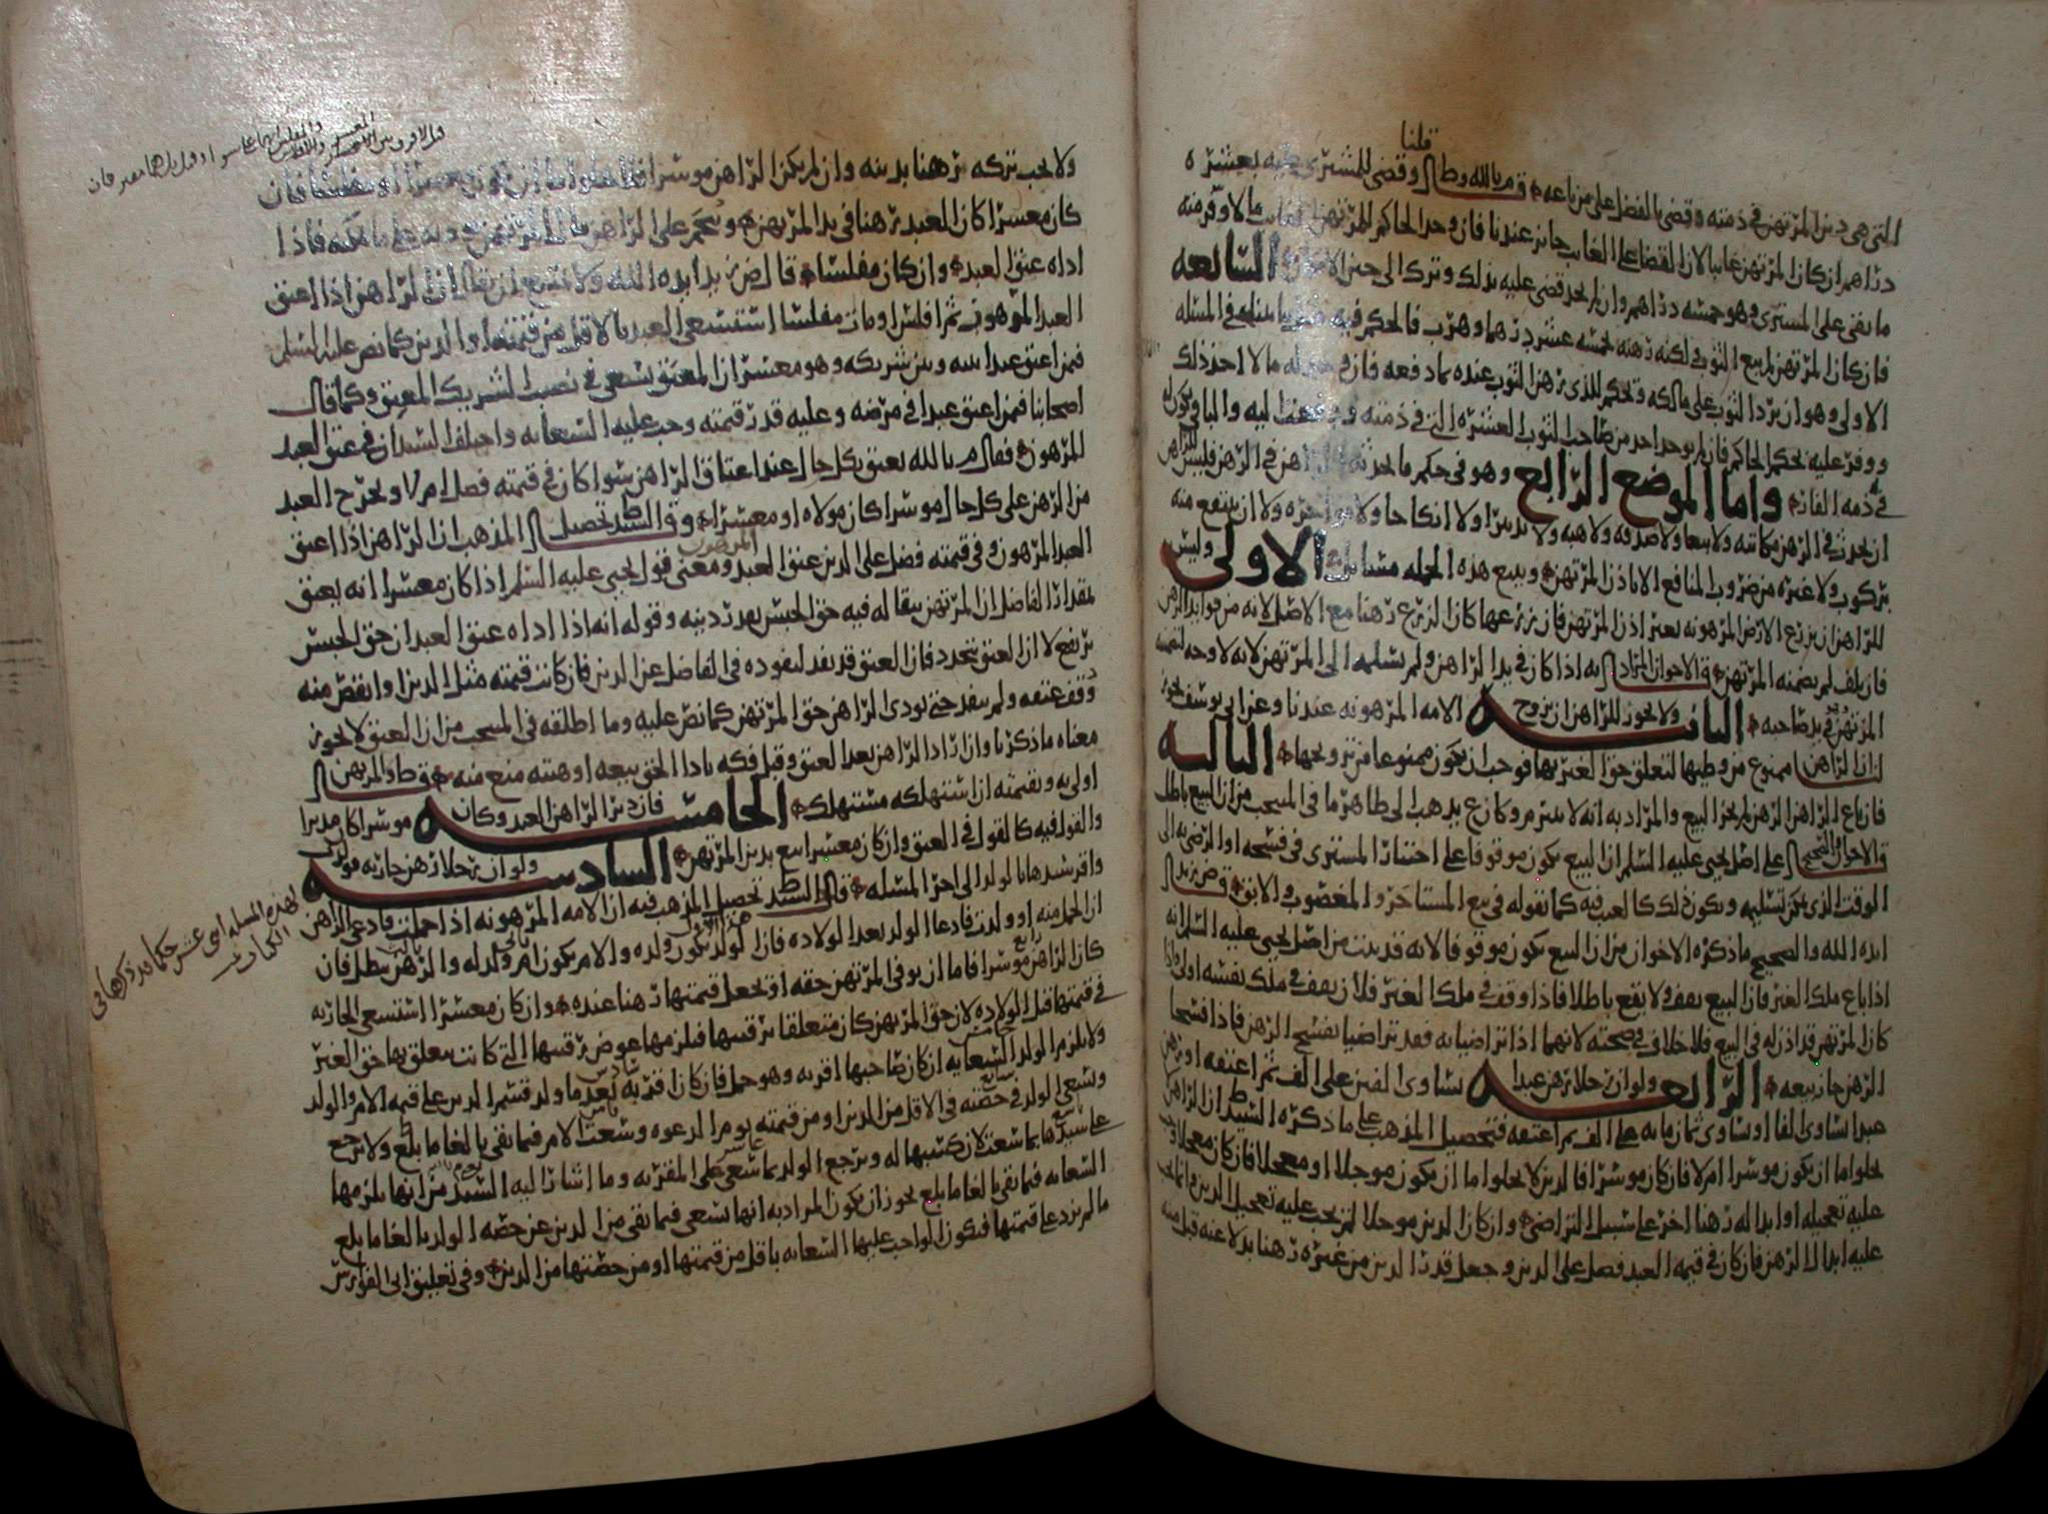 قلنا
التي هي دين المرتهن في ذمته وقضى بالفضل على من باعه قم بالله وط وقضى للمشتري عليه بعشره
دراهم ان كان المرتهن غايبا لان القضا على الغايب جايز عندنا فان وجد الحاكم للمرتهن مالا وفر منه
ما بقي على المشتري وهو خمسه دراهم وان لم يجد قضى عليه بذلك وترك الى حين السابعه
فان كان المرتهن لم يبع الثوب لكنه رهنه بخمسه عشر درهما وهرب فالحكم فيه في المسله
الاولى وهو ان يرد الثوب على مالكه ويحكم للذي رهن الثوب عنده بما دفعه فان مالا اخذ ذلك
ووفر عليه بحكم الحاكم فان لم يوجد اخذ من صاحب الثوب العشره التي في ذمته ودفعها اليه والباقي يكون له
في ذمه الفار واما الموضع الرابع وهو في حكم ما يحدثه الراهن في الرهن فليس للراهن
ان يحدث في الرهن مكاتبه ولا بيعا ولا صدقه ولا هبه ولا تدبيرا ولا انكاحا ولا ولا ان ينتفع منه
بركوب ولا غيره من ضروب المنافع الا باذن المرتهن وتتبع هذه الجمله مسايل الاولى وليس
للراهن ان يزرع الارض المرهونه بغير اذن المرتهن فان زرعها كان الزرع رهنا مع الاصل لانه من فوايد الرهن
فان تلف لم يضمنه المرتهن قال الاخوان المراد به اذا كان في يد الراهن ولم يسلمه الى المرتهن لانه لا وجه لتضمينه
المرتهن في يد صاحبه الثانيه ولا يجوز للراهن ان يزوج الامه المرهونه عندنا وعن ابي يوسف يجوز
لنا ان الراهن ممنوع من وطيها لتعلق حق الغير بها فوجب ان يكون ممنوعا من تزويجها الثالثه
فان باع الراهن الرهن لم يجز البيع والمراد به انه لا يبرم وكان ع يذهب الى ظاهر ما في المنتخب من ان البيع باطل
قال الاخوان والصحيح على اصل يحيى عليه السلم ان البيع يكون موقوفا على اختيار المشتري في فسخه او الرضى به الى
الوقت الذي يمكن تسليمه ويكون ذلك كالعيب فيه كما نقوله في بيع المستاجر والمغصوب والابق قال ض زيد
ايده الله والصحيح ما ذكره الاخوان من ان البيع يكون موقوفا لانه قد ثبت من اصل يحيى عليه السلم انه
اذا باع ملك الغير فان البيع يقف ولا يقع باطلا فاذا وقف في ملك الغير فلان يقف في ملك نفسه اولى واذا
كان المرتهن قد اذن له في البيع فلا خلاف في صحته لانهما اذا تراضيا به فقد تراضيا بفسخ الرهن فاذا فسخا
الرهن جاز بيعه الرابعه ولو ان رجلا رهن عبدا يساوي الفين على الف ثم اعتقه او رهن
عبدا يساوي الفا او يساوي ثمان مايه على الف ثم اعتقه فتحصيل المذهب على ما ذكره السيد ط ان الراهن
لا يخلو اما ان يكون موسرا ام لا فان كان موسرا فالدين لا يخلو اما ان يكون موجلا او معجلا فان كان معجلا وجب
عليه تعجيله او ابداله رهنا اخر على سبيل التراضي وان كان الدين موجلا لم يجب عليه تعجيل الدين وانما يجب
عليه ابدال الرهن فان كان في قيمه العبد فضل على الدين وجعل قدر الدين من غيره رهنا بدلا عنه قبل منه
ولا يجب تركه رهنا بدينه وان لم يكن الراهن موسرا فلا يخلو اما ان يكون معسرا او مفلسا فان
كان معسرا كان العبد رهنا في يد المرتهن ونجم على الراهن مال المرتهن على ما يمكنه فاذا
اداه عتق العبد وان كان مفلسا قال ض زيد ايده الله ولا يمتنع ان يقال ان الراهن اذا اعتق
العبد المرهون ثم افلس او مات مفلسا استسعى العبد بالاقل من قيمته او الدين كما نص عليه السلم
فيمن اعتق عبدا بينه وبين شريكه وهو معسر ان المعتق يسعى في نصيب الشريك المعتق وكما قال
اصحابنا فيمن اعتق عبدا في مرضه وعليه قدر قيمته وجب عليه السعايه واختلف السيدان في عتق العبد
المرهون فقال م بالله يعتق بكل حال عند اعتاق الراهن سوا كان في قيمته فضل ام لا ويخرج العبد
من الرهن على كل حال موسرا كان مولاه او معسرا وقال السيد ط تحصيل المذهب ان الراهن اذا اعتق
العبد المرهون وفي قيمته فضل على الدين عتق العبد ومعنى قول يحيى عليه السلم اذا كان معسرا انه يعتق
بمقدار الفاضل ان المرتهن يبقا له فيه حق الحبس بقدر دينه وقوله انه اذا اداه عتق العبد ان حق الحبس
يرتفع لا ان العتق يتجدد فان العتق قد نفذ لنفوذه في الفاضل عن الدين فان كانت قيمته مثل الدين او انقص منه
وقف عتقه ولم ينفذ حتى يودي الراهن حق المرتهن كما نص عليه وما اطلقه في المنتخب من ان العتق لا يجوز
معناه ما ذكرنا وان اراد الراهن بعد العتق وقبل فكه بادا الحق بيعه او هبته منع منه قال ط والمرتهن
اولى به وبقيمته ان استهلكه مستهلك الخامسه فان دبر الراهن العبد وكان موسرا كان مدبرا
والقول فيه كالقول في العتق وان كان معسرا بيع بدين المرتهن السادسه ولو ان رجلا رهن جاريه
واقر سيدها بالولد الى اخر المسله قال السيد ط تحصيل المذهب فيه ان الامه المرهونه اذا حملت فادعى الراهن
ان الحمل منه او ولدت فادعا الولد بعد الولاده فان الولد يكون ولده والام يكون ام ولد له والرهن يبطل فان
كان الراهن موسرا فاما ان يوفي المرتهن حقه او يجعل قيمتها رهنا عنده وان كان معسرا استسعى الجاريه
في قيمتها قبل الولاده لان حق المرتهن كان متعلقا برقبتها فيلزمها عوض رقبتها التي كانت تعلق بها حق الغير
ولا يلزم الولد السعايه ان كان صاحبها اقر به وهو حمل فان كان اقر به بعد ما ولد قسم الدين على قيمه الام والولد
ويسعى الولد في حصته في الاقل من الدين او من قيمته يوم الدعوه وسعت الام فيما بقي بالغا ما بلغ ولا ترجع
على سيدها بما سعت لان كسبها له ويرجع الولد بما سعى على المقر به وما اشار اليه السيد من انها يلزمها
السعايه فيما بقي بالغا ما بلغ يجوز ان يكون المراد به انها تسعى فيما بقي من الدين عن حصه الولد بالغا ما بلغ
ما لم يزد على قيمتها فيكون الواجب عليها السعايه باقل من قيمتها او من حصتها من الدين وفي تعليق ابن ابي الفوارس
لهذه المسله اثنى عشر حكما قد ذكرها في
الكتاب